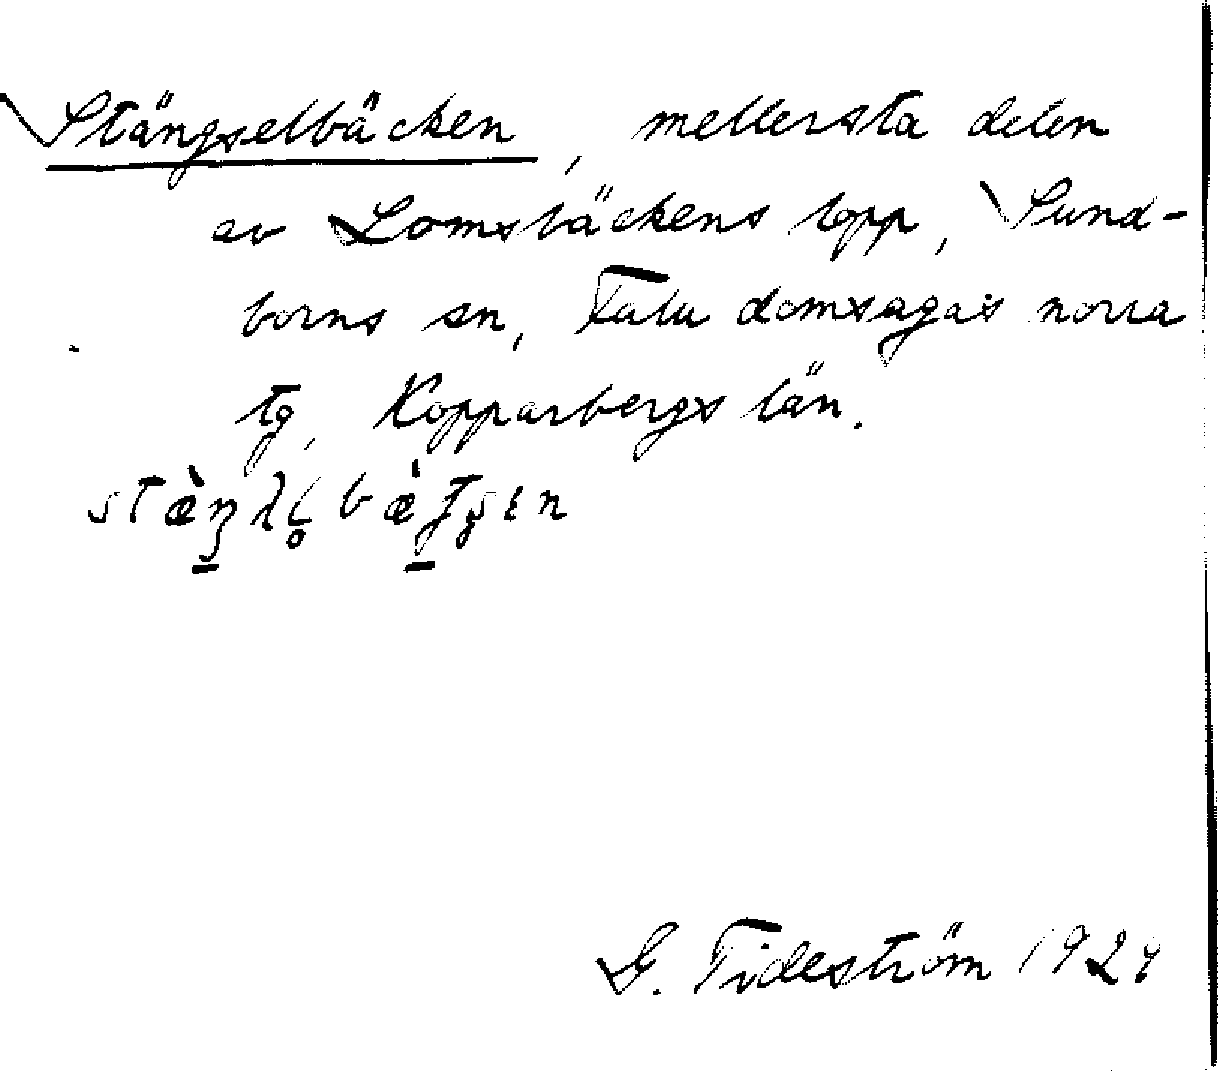 Stängselbäcken, mellersta delen
av Lomsbäckens lopp, Sund-
borns sn, Falu domsagas norra
tg, Kopparbergs län.
G. Tideström 1924